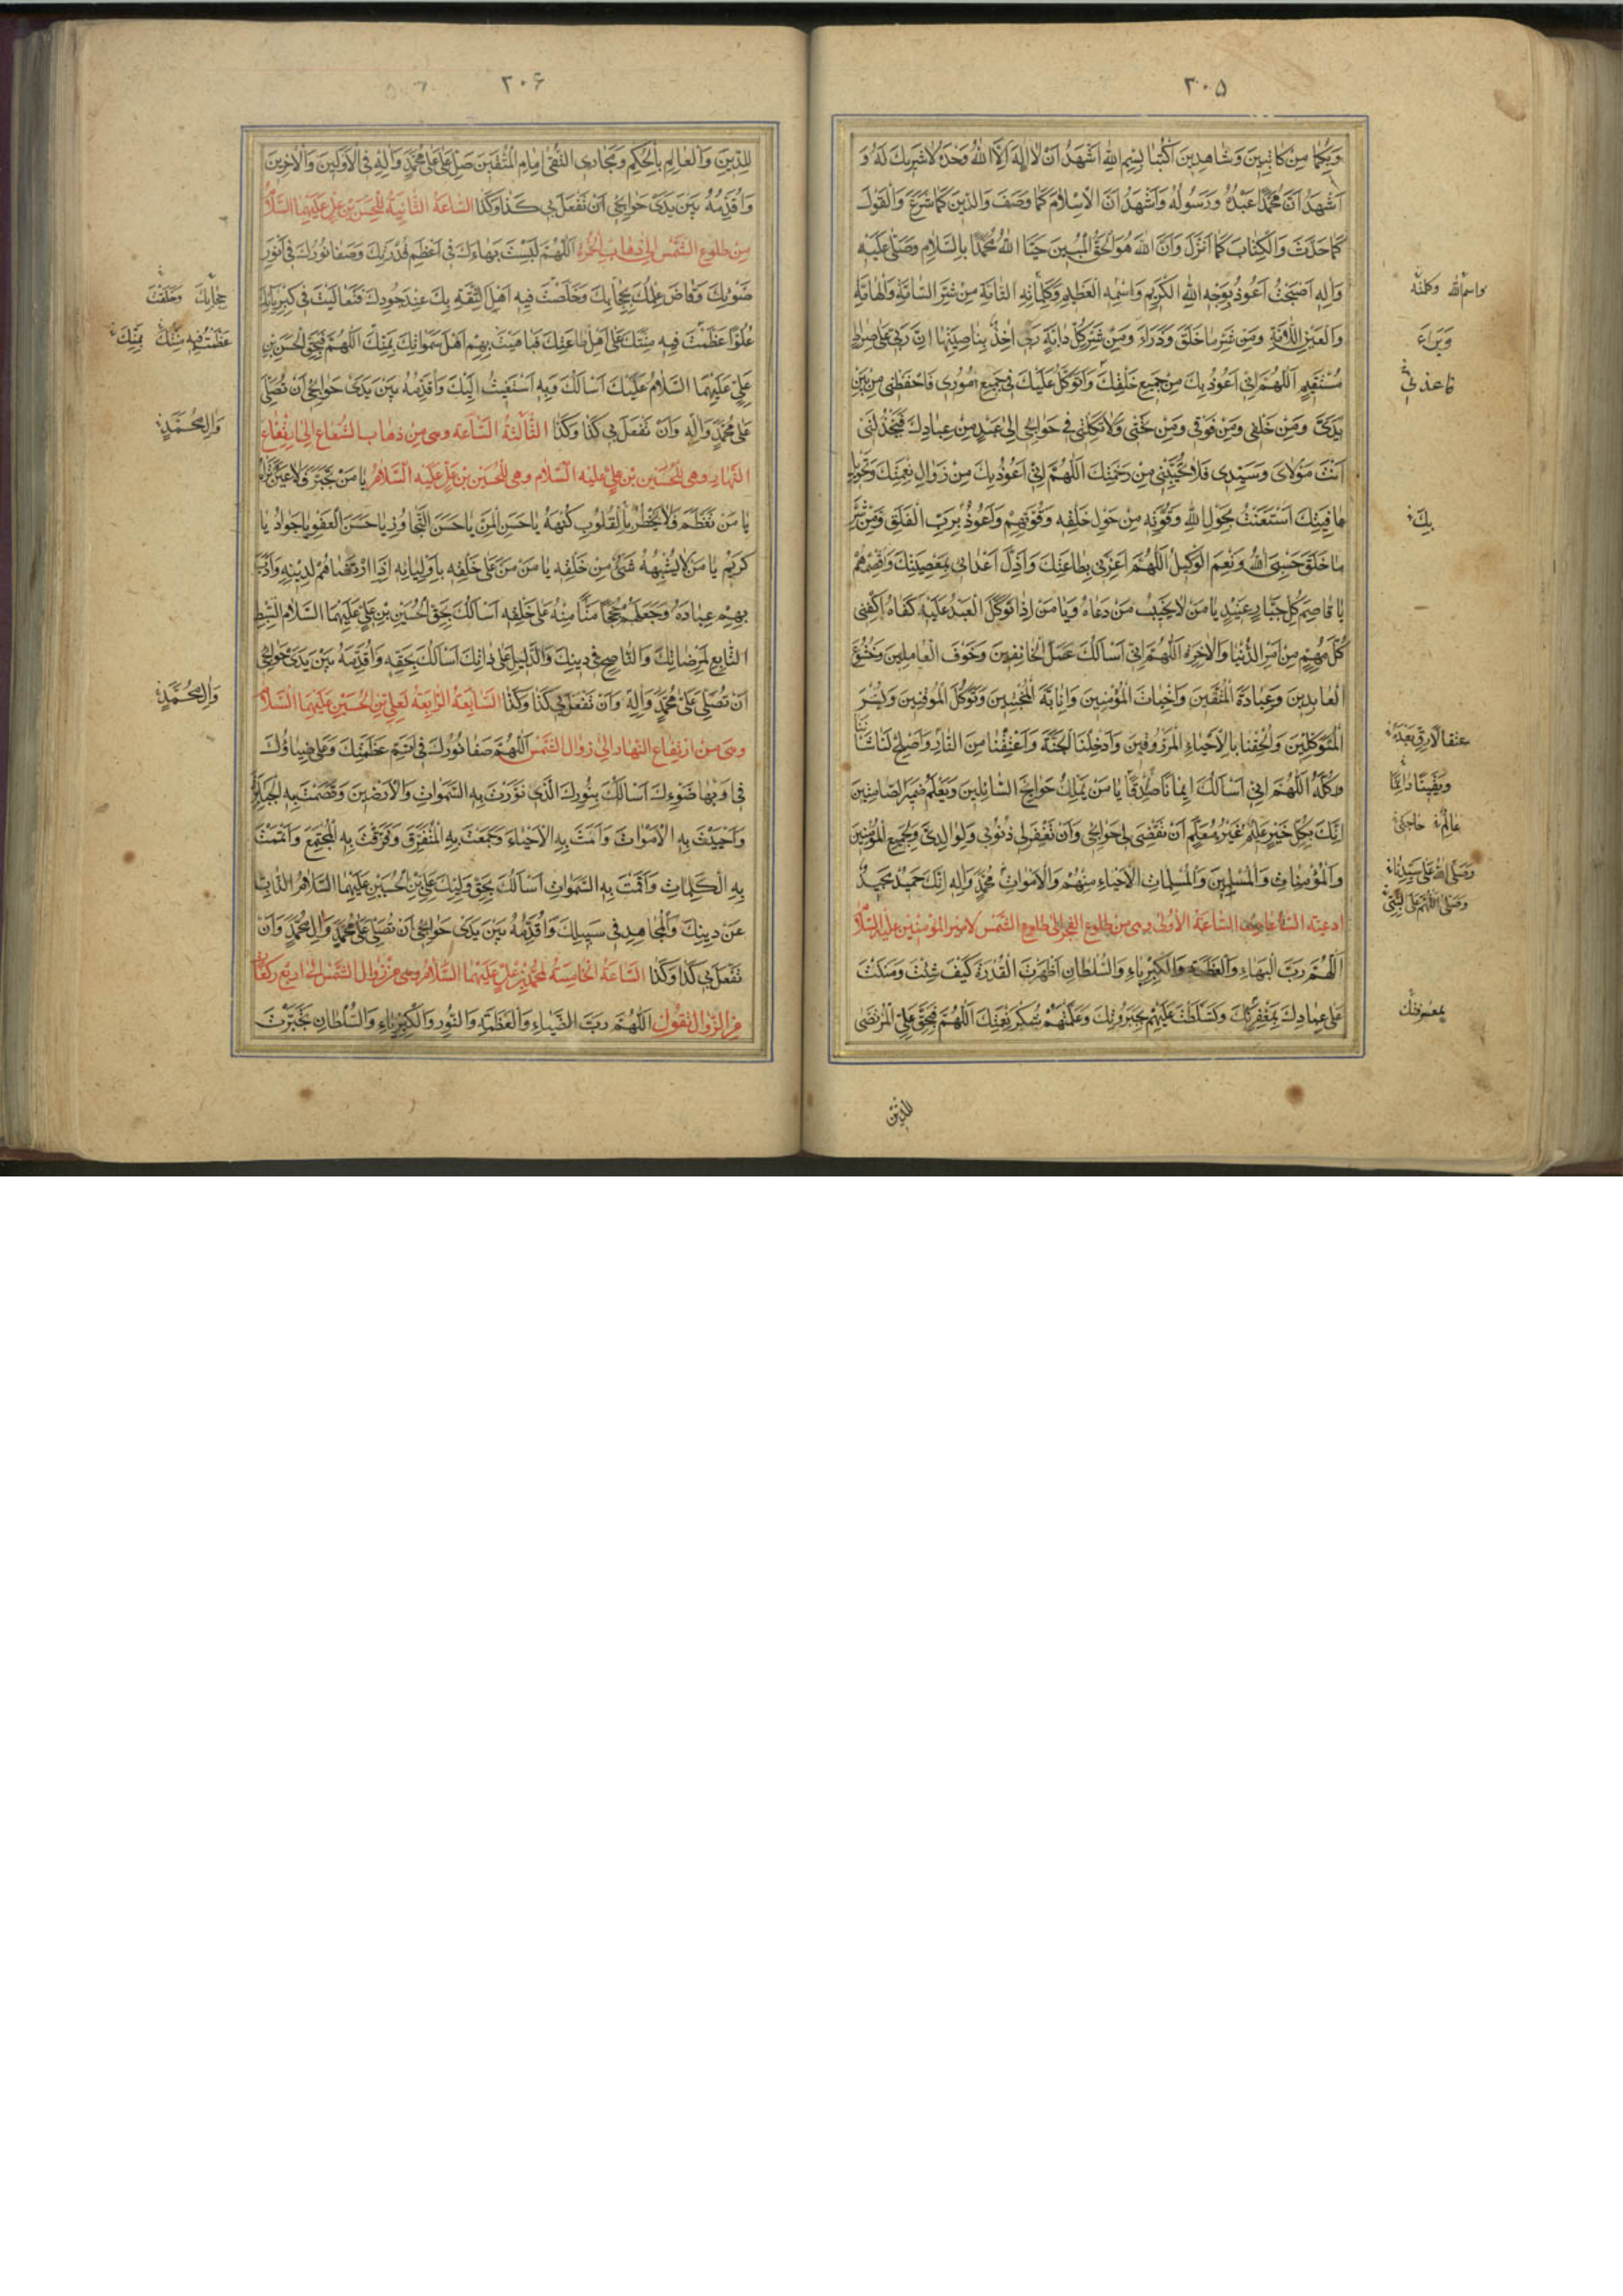 ٣٠۵
وَبِكُمَا مِنْ كَاتِبَيْنِ وَشَاهِدَيْنِ اكْتُبَا بِسْمِ اللهِ اَشْهَدُ اَنْ لٰا اِلٰهَ اِلَّا اللهُ وَحْدَهُ لٰا شَرِيكَ لَهُ وَ
اَشْهَدُ اَنَّ مُحَمَّدًا عَبْدُهُ وَرَسُولُهُ وَاَشْهَدُ اَنَّ الْاِسْلٰامَ كَمَا وَصَفَ وَالدِّينَ كَمَا شَرَعَ وَالْقَوْلَ
كَمَا حَدَّثَ وَالْكِتَابَ كَمَا اَنْزَلَ وَاَنَّ اللهَ هُوَ الْحَقُّ الْمُبِينُ حَيَّا اللهُ مُحَمَّدًا بِالسَّلٰامِ وَصَلَّى عَلَيْهِ
وَاٰلِهِ اَصْبَحْتُ اَعُوذُ بِوَجْهِ اللهِ الْكَرِيمِ وَاسْمِهِ الْعَظِيمِ وَكَلِمَاتِهِ التَّامَّةِ مِنْ شَرِّ السَّامَّةِ وَالْهَامَّةِ
واسم الله وكلمته
وَالْعَيْنِ اللَّامَّةِ وَمِنْ شَرِّ مَا خَلَقَ وَذَرَاَ وَمِنْ شَرِّ كُلِّ دَابَّةٍ رَبِّى اٰخِذٌ بِنَاصِيَتِهَا اِنَّ رَبِّى عَلَى صِرَاطٍ
وَبَرَاَ
مُسْتَقِيمٍ اَللّٰهُمَّ اِنِّى اَعُوذُ بِكَ مِنْ جَمِيعِ خَلْقِكَ وَاَتَوَكَّلُ عَلَيْكَ فِى جَمِيعِ اُمُورِى فَاحْفَظْنِى مِنْ بَيْنِ
فاعذنى
يَدَىَّ وَمِنْ خَلْفِى وَمِنْ فَوْقِى وَمِنْ تَحْتِى وَلٰا تَكِلْنِى فِى حَوَائِجِى اِلَى عَبْدٍ مِنْ عِبَادِكَ فَيَخْذُلَنِى
اَنْتَ مَوْلٰاىَ وَسَيِّدِى فَلٰا تُخَيِّبْنِى مِنْ رَحْمَتِكَ اَللّٰهُمَّ اِنِّى اَعُوذُ بِكَ مِنْ زَوَالِ نِعْمَتِكَ وَتَحْوِيلِ
عَافِيَتِكَ اسْتَعَنْتُ بِحَوْلِ اللهِ وَقُوَّتِهِ مِنْ حَوْلِ خَلْقِهِ وَقُوَّتِهِمْ وَاَعُوذُ بِرَبِّ الْفَلَقِ وَمِنْ شَرِّ
بِكَ
مَا خَلَقَ حَسْبِىَ اللهُ وَنِعْمَ الْوَكِيلُ اَللّٰهُمَّ اَعِزَّنِى بِطَاعَتِكَ وَاَذِلَّ اَعْدَائِى بِمَعْصِيَتِكَ وَاقْصِمْهُمْ
يَا قَاصِمَ كُلِّ جَبَّارٍ عَنِيدٍ يَا مَنْ لٰا يُخَيِّبُ مَنْ دَعَاهُ وَيَا مَنْ اِذَا تَوَكَّلَ الْعَبْدُ عَلَيْهِ كَفَاهُ اكْفِنِى
كُلَّ مُهِمٍّ مِنْ اَمْرِ الدُّنْيَا وَالْاٰخِرَةِ اَللّٰهُمَّ اِنِّى اَسْاَلُكَ عَمَلَ الْخَائِفِينَ وَخَوْفَ الْعَامِلِينَ وَخُشُوعَ
الْعَابِدِينَ وَعِبَادَةَ الْمُتَّقِينَ وَاِخْبَاتَ الْمُؤْمِنِينَ وَاِنَابَةَ الْمُخْبِتِينَ وَتَوَكُّلَ الْمُوقِنِينَ وَبُشْرَ
الْمُتَوَكِّلِينَ وَاَلْحِقْنَا بِالْاَحْيَاءِ الْمَرْزُوقِينَ وَاَدْخِلْنَا الْجَنَّةَ وَاَعْتِقْنَا مِنَ النَّارِ وَاَصْلِحْ لَنَا شَاْنَنَا
كُلَّهُ اَللّٰهُمَّ اِنِّى اَسْاَلُكَ اِيمَانًا صَادِقًا يَا مَنْ يَمْلِكُ حَوَائِجَ السَّائِلِينَ وَيَعْلَمُ ضَمِيرَ الصَّامِتِينَ
وَيَقِينًا دَائِمًا
اِنَّكَ بِكُلِّ خَيْرٍ عَلِيمٌ غَيْرُ مُعَلَّمٍ اَنْ تَقْضِىَ لِى حَوَائِجِى وَاَنْ تَغْفِرَ لِى ذُنُوبِى وَلِوَالِدَىَّ وَلِجَمِيعِ الْمُؤْمِنِينَ
عَالِمٌ حاجتى
وَالْمُؤْمِنَاتِ وَالْمُسْلِمِينَ وَالْمُسْلِمَاتِ الْاَحْيَاءِ مِنْهُمْ وَالْاَمْوَاتِ مُحَمَّدٍ وَاٰلِهِ اِنَّكَ حَمِيدٌ مَجِيدٌ
وَصَلَّى اللهُ عَلَى سَيِّدِنَا
ادعية الساعات الساعة الأولى وهى من طلوع الفجر الى طلوع الشمس لامير المؤمنين عليه السلام
اَللّٰهُمَّ رَبَّ الْبَهَاءِ وَالْعَظَمَةِ وَالْكِبْرِيَاءِ وَالسُّلْطَانِ اَظْهَرْتَ الْقُدْرَةَ كَيْفَ شِئْتَ وَمَنَنْتَ
عَلَى عِبَادِكَ بِمَغْفِرَتِكَ وَتَسَلَّطْتَ عَلَيْهِمْ بِجَبَرُوتِكَ وَعَلَّمْتَهُمْ شُكْرَ نِعْمَتِكَ اَللّٰهُمَّ فَبِحَقِّ عَلِىٍّ الْمُرْتَضَى
بمعرفتك
للدين
٣٠۶
لِلدِّينِ وَالْعَالِمِ بِالْحُكْمِ وَمَجَارِى التُّقَى اِمَامِ الْمُتَّقِينَ صَلِّ عَلَى مُحَمَّدٍ وَاٰلِهِ فِى الْاَوَّلِينَ وَالْاٰخِرِينَ
وَاُقَدِّمُهُ بَيْنَ يَدَىْ حَوَائِجِى اَنْ تَفْعَلَ بِى كَذَا وَكَذَا السَّاعَةُ الثَّانِيَةُ لِلْحَسَنِ بْنِ عَلِىٍّ عَلَيْهِمَا السَّلٰامُ
مِنْ طلوع الشَّمْس الى ذهاب الْحُمْرَة اَللّٰهُمَّ لَبِسْتَ بَهَاءَكَ فِى اَعْظَمِ قُدْرَتِكَ وَصَفَا نُورُكَ فِى اَنْوَرِ
ضَوْئِكَ وَفَاضَ عِلْمُكَ حِجَابَكَ وَخَلَّصْتَ فِيهِ اَهْلَ الثِّقَةِ بِكَ عِنْدَ جُودِكَ فَتَعَالَيْتَ فِى كِبْرِيَائِكَ
حِجَابَكَ وَخَلَقْتَ
عُلُوًّا عَظُمَتْ فِيهِ مِنَّتُكَ عَلَى اَهْلِ طَاعَتِكَ فَبَاهَيْتَ بِهِمْ اَهْلَ سَمٰوَاتِكَ بِمَنِّكَ اَللّٰهُمَّ فَبِحَقِّ الْحَسَنِ بْنِ
عَلِىٍّ عَلَيْهِمَا السَّلٰامُ عَلَيْكَ اَسْاَلُكَ وَبِهِ اَسْتَغِيثُ اِلَيْكَ وَاُقَدِّمُهُ بَيْنَ يَدَىْ حَوَائِجِى اَنْ تُصَلِّىَ
عَلَى مُحَمَّدٍ وَاٰلِهِ وَاَنْ تَفْعَلَ بِى كَذَا وَكَذَا الثَّالِثَةُ السَّاعَة وهى من ذهاب الشعاع الى ارتفاع
وَاٰلِ مُحَمَّدٍ
النَّهَارِ وهى للحُسَيْنِ بن علىّ عليه السَّلام وهى لِلْحُسَيْن بْن عَلِىٍّ عَلَيْهِ السَّلٰامُ يَا مَنْ تَجَبَّرَ فَلٰا عَيْنٌ تَرَاهُ
يَا مَنْ تَعَظَّمَ فَلٰا تَخْطُرُ بِالْقُلُوبِ كُنْهُهُ يَا حَسَنَ الْمَنِّ يَا حَسَنَ التَّجَاوُزِ يَا حَسَنَ الْعَفْوِ يَا جَوَادُ يَا
كَرِيمُ يَا مَنْ لٰا يُشْبِهُهُ شَىْءٌ مِنْ خَلْقِهِ يَا مَنْ مَنَّ عَلَى خَلْقِهِ بِاَوْلِيَائِهِ اِذِ ارْتَضَاهُمْ لِدِينِهِ وَاَدَّبَ
بِهِمْ عِبَادَهُ وَجَعَلَهُمْ حُجَجًا مَنًّا مِنْهُ عَلَى خَلْقِهِ اَسْاَلُكَ بِحَقِّ الْحُسَيْنِ بْنِ عَلِىٍّ عَلَيْهِمَا السَّلٰام السِّبْطِ
التَّابِعِ لِمَرْضَاتِكَ وَالنَّاصِحِ فِى دِينِكَ وَالدَّلِيلِ عَلَى ذَاتِكَ اَسْاَلُكَ بِحَقِّهِ وَاُقَدِّمُهُ بَيْنَ يَدَىْ حَوَائِجِى
اَنْ تُصَلِّىَ عَلَى مُحَمَّدٍ وَاٰلِهِ وَاَنْ تَفْعَلَ بِى كَذَا وَكَذَا السَّاعَةُ الرَّابِعَةُ لِعَلِىِّ بْنِ الْحُسَيْنِ عَلَيْهِمَا السَّلٰامُ
وَاٰلِ مُحَمَّدٍ
وهى من ارتفاع النهار الى زوال الشَّمْس اَللّٰهُمَّ صَفَا نُورُكَ فِى اَتَمِّ عَظَمَتِكَ وَعَلَا ضِيَاؤُكَ
فِى اَبْهَى ضَوْءِكَ اَسْاَلُكَ بِنُورِكَ الَّذِى نَوَّرْتَ بِهِ السَّمٰوَاتِ وَالْاَرَضِينَ وَقَصَمْتَ بِهِ الْجَبَابِرَةَ
وَاَحْيَيْتَ بِهِ الْاَمْوَاتَ وَاَمَتَّ بِهِ الْاَحْيَاءَ وَجَمَعْتَ بِهِ الْمُتَفَرِّقَ وَفَرَّقْتَ بِهِ الْمُجْتَمِعَ وَاَتْمَمْتَ
بِهِ الْكَلِمَاتِ وَاَقَمْتَ بِهِ السَّمٰوَاتِ اَسْاَلُكَ بِحَقِّ وَلِيِّكَ عَلِىِّ بْنِ الْحُسَيْنِ عَلَيْهِمَا السَّلٰامُ الذَّابِّ
عَنْ دِينِكَ وَالْمُجَاهِدِ فِى سَبِيلِكَ وَاُقَدِّمُهُ بَيْنَ يَدَىْ حَوَائِجِى اَنْ تُصَلِّىَ عَلَى مُحَمَّدٍ وَاٰلِ مُحَمَّدٍ وَاَنْ
تَفْعَلَ بِى كَذَا وَكَذَا السَّاعَةُ الْخَامِسَةُ لِمُحَمَّدِ بْنِ عَلِىٍّ عَلَيْهِمَا السَّلٰامُ وهى من زوال الشَّمْس الى اربع ركعات
مِنَ الزَّوَال تَقُولُ اَللّٰهُمَّ رَبَّ الضِّيَاءِ وَالْعَظَمَةِ وَالنُّورِ وَالْكِبْرِيَاءِ وَالسُّلْطَانِ تَجَبَّرْتَ